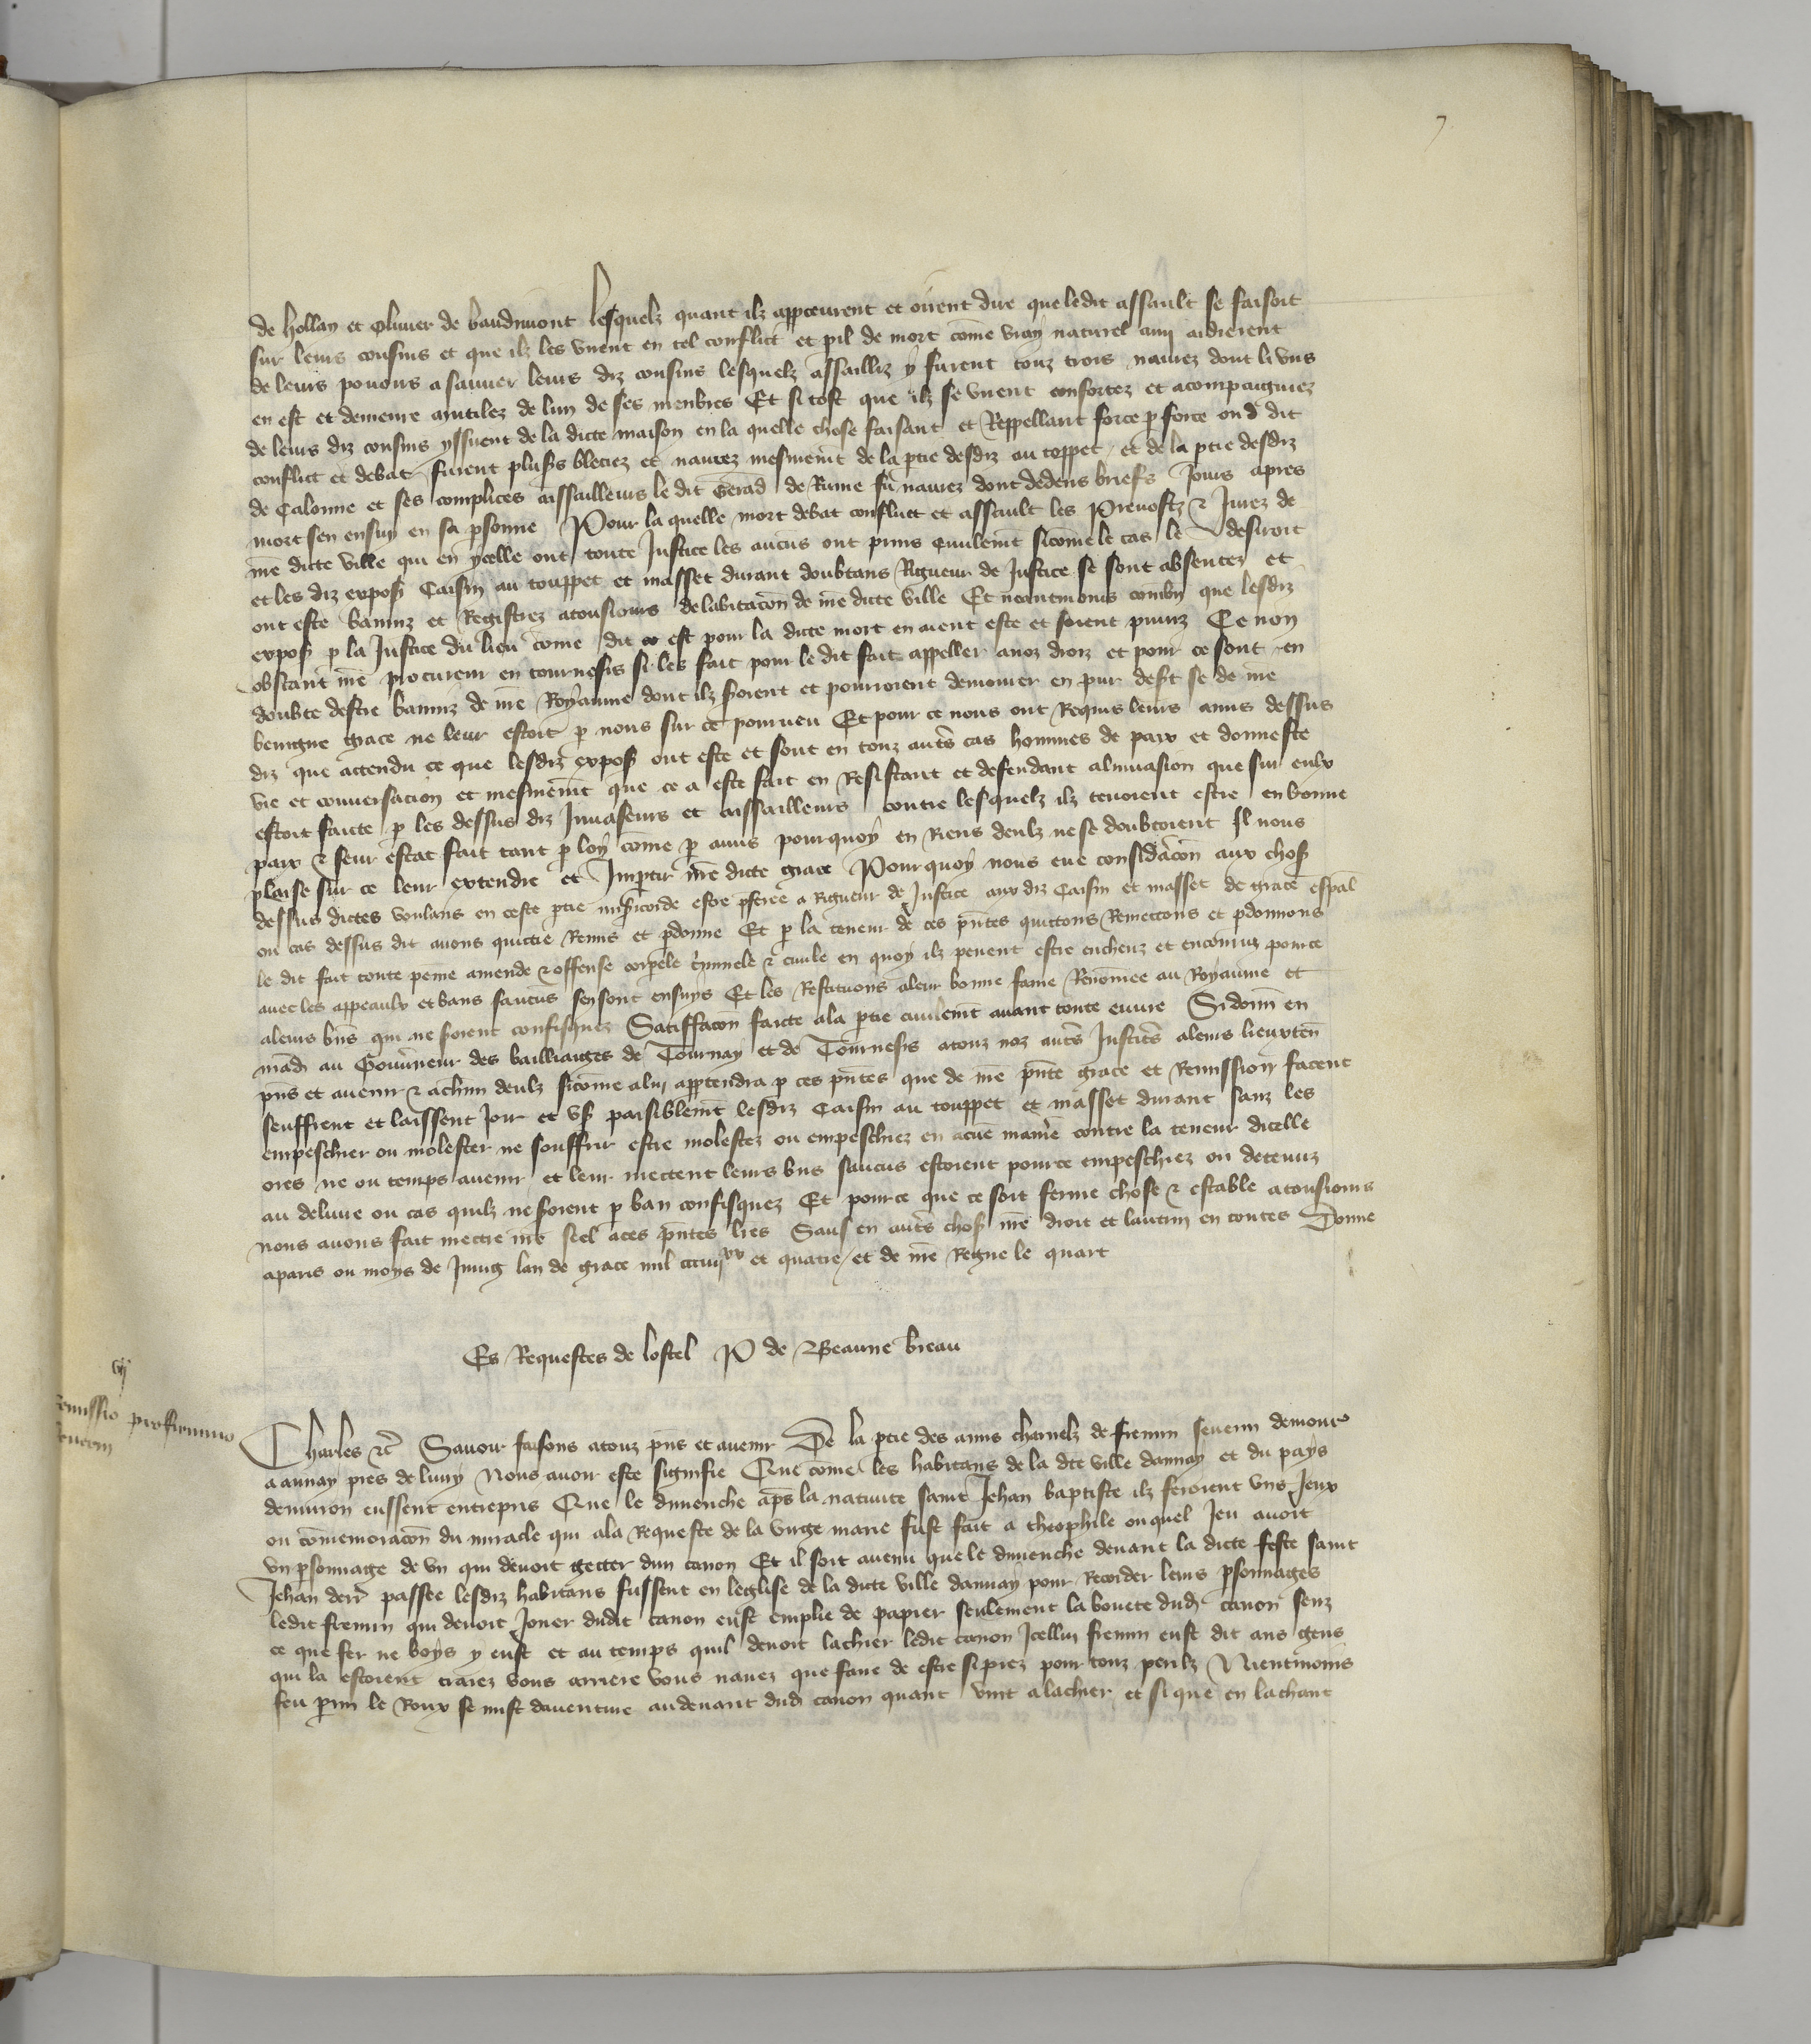 7
de hollay et oliuier de baudimont lesquelz quant ilz appceurent et oirent dire que ledit assault se faisoit
sur leurs cousins et que ilz les virent en tel conflict et pil de mort cōme vray naturel amy aidierent
de leurs pouoirs a sauuer leurs diz cousins lesquelz assailliz y furent touz trois naurez dont li vns
en est et demeure mutilez de lun de ses menbres Et si tost que ilz se virent confortez et acompaigniez
de leurs diz cousins yssirent de la dicte maison en la quelle chose faisant et Reppellant force p force ou dit
conflict et debat furent plusrs bleciez et naurez mesmemēt de la ptie desdiz au toppet et de la ptie desdiz
de Calonne et ses complices assailleurs le dit Gerad de Rume fu naurez dont dedens briefs Jours apres
mort sen ensuy en sa psonne Pour la quelle mort debat conflict et assault les Preuostz & Jurez de
nre dicte ville qui en ycelle ont toute Justice les aucuns ont prins ciuilemēt sicōme le cas le desiroit
et les diz expos Caisin au touppet et masset durant doubtans Rigueur de Justice se sont absentez et
ont este banniz et Registrez atousiours de labitacōn de nre dicte ville Et neantmoins combn que lesdiz
expos p la Justice du lieu cōme dit est pour la dicte mort en aient este et soient puniz Ce non
obstant nre procureur en tournesis si les fait pour le dit fait appeller anoz droiz et pour ce sont en
doubte destre banniz de nre Royaume dont ilz seroient et pourroient demourer en pur desert se de nre
benigne grace ne leur estoit p nous sur ce pourueu Et pour ce nous ont Requis leurs amis dessus
diz que attendu ce que lesdiz expos ont este et sont en touz autrs cas hommes de paix et donneste
vie et conuersacion et mesmemēt que ce a este fait en Resistant et defendant alinuasion que sur eulx
estoit faicte p les dessus diz Inuaseurs et assailleurs contre lesquelz ilz tenoient estre en bonne
paix & seur estat fait tant p loy cōme p amis pourquoy en Riens deulz ne se doubtoient Il nous
plaise sur ce leur extendre et Impartir nre dicte grace Pourquoy nous eue consideracōn aux chos
dessus dictes voulans en ceste ptie misericorde estre pferee a Rigueur de Justice aux diz Caisin et masset de grace espāl
ou cas dessus dit auons quictie Remis et pdonne Et p la teneur de ces pntes quittons Remettons et pdonnons
le dit fait toute peine amende & offense corpele criminele & ciuile en quoy ilz peuent estre encheuz et encouruz pource
auec les appeaulx et bans saucuns sensont ensuys Et les Restituons aleur bonne fame Renōmee au Royaume et
aleurs bns qui ne soient confisquez Satiffacōn faicte ala ptie ciuilemēt auant toute euure Si donn en
mand au Gouuneur des bailliaiges de Tournay et de Tournesis atouz noz autrs Justicrs aleurs lieuxten
pns et auenir & achun deulz sicōme alui apptendra p ces pntes que de nre pnte grace et Remission facent
seuffrent et laissent Jour et vs paisiblemēt lesdiz Caisin au touppet et masset durant sanz les
empeschier ou molester ne souffrir estre molestez ou empeschiez en acue maniere contre la teneur dicelle
ores ne ou temps auenir et leur mettent leurs bns saucuns estoient pource empeschiez ou detenuz
au deliure ou cas quilz ne soient p ban confisquez Et pource que ce soit ferme chose & estable atousiours
nous auons fait mectre nre seel aces pntes lres Sauf en autrs chos nre droit et lautruy en toutes Donne
aparis ou moys de Juing lan de grace mil ccciiijxx et quatre et de nre Regne le quart
Es Requestes de lostel P de Beaune breau
vij
remissio pro firmino
seuerin
Charles &c Sauoir faisons atouz pns et auenir De la ptie des amis charnelz de fremin seuerin demour
a aunay pres de liury Nous auoir este signifie Que cōme les habitans de la dte ville daunay et du pays
denuiron eussent entrepris Que le dimenche aps la natiuite saint Jehan baptiste ilz feroient vns Jeux
ou cōmemoracōn du miracle qui ala Requeste de la virge marie fust fait a theophile ouquel Jeu auoit
vn psonnage de vn qui deuoit getter dun canon Et il soit auenu que le dimenche deuant la dicte feste saint
Jehan derr passee lesdiz habitans fussent en leglise de la dicte ville daunay pour Recorder leurs psonnages
ledit fremin qui deuoit Jouer dudit canon eust emplie de papier seulement la boueste dud canon senz
ce que fer ne boys y eust et au temps quil deuoit lachier ledit canon Icellui fremin eust dit aus gens
qui la estoient traiez vous arriere vous nauez que faire de estre si prez pour touz perilz Nientmoins
feu prin le Roux se mist dauenture audeuant dud canon quant vint alachier et si que en lachant